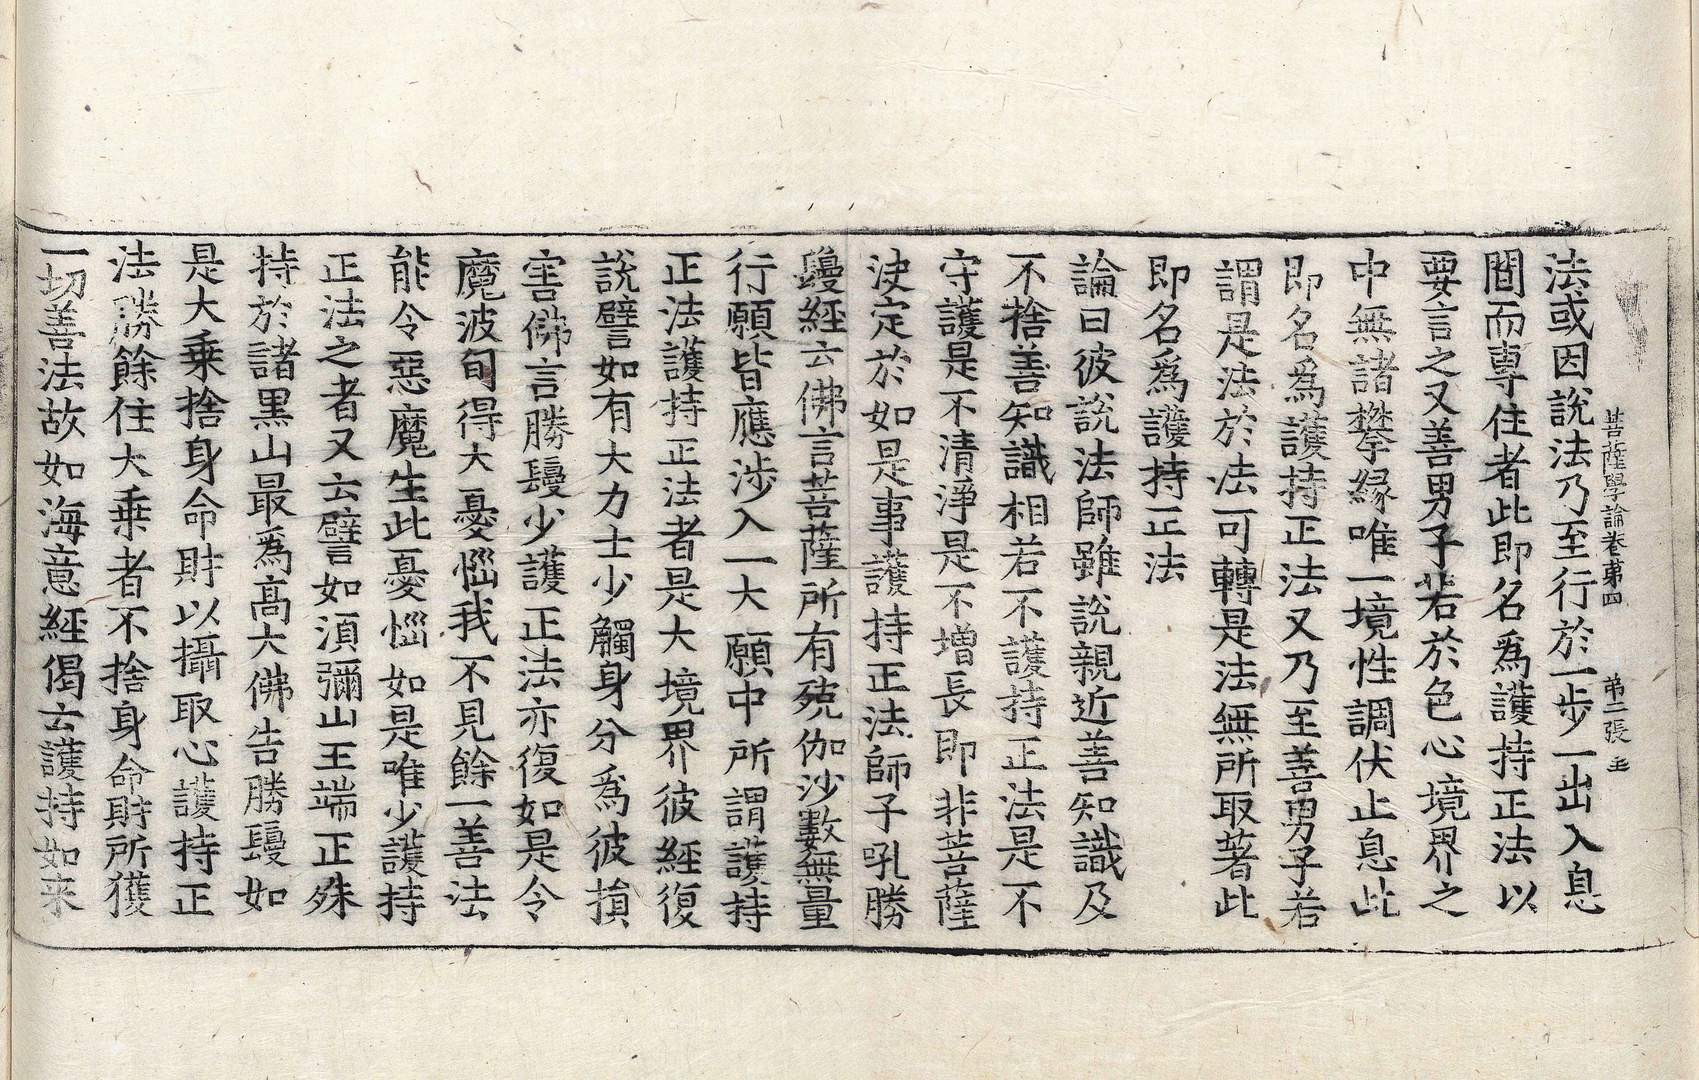 菩薩學論卷第四　第二張　主
法或因說法乃至行於一步一出入息
間而專住者此即名為護持正法以
要言之又善男子若於色心境界之
中無諸攀緣唯一境性調伏止息此
即名為護持正法又乃至善男子若
謂是法於法可轉是法無所取著此
即名為護持正法
論曰彼說法師雖說親近善知識及
不捨善知識相若不護持正法是不
守護是不清淨是不增長即非菩薩
決定於如是事護持正法師子吼勝
鬘經云佛言菩薩所有殑伽沙數無量
行願皆應涉入一大願中所謂護持
正法護持正法者是大境界彼經復
說譬如有大力士少觸身分為彼損
害佛言勝鬘少護正法亦復如是令
魔波旬得大憂惱我不見餘一善法
能令惡魔生此憂惱如是唯少護持
正法之者又云譬如須彌山王端正殊
持於諸黑山最為高大佛告勝鬘如
是大乘捨身命財以攝取心護持正
法勝餘住大乘者不捨身命財所獲
一切善法故如海意經偈云護持如来